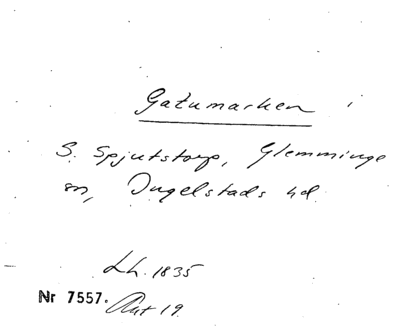 Gatumarken i
S. Spjutstorp, Glemminge
sn, Ingelstads hd.
Lh. 1835
Nr 7557. Akt 19.